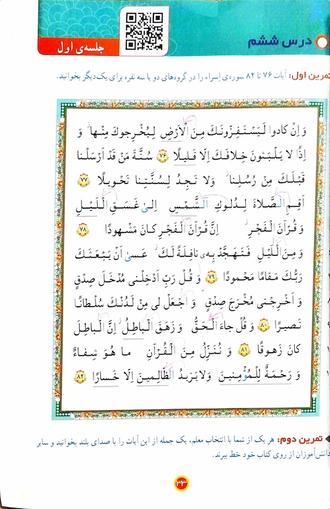 درس ششم
جلسه‌ی اول
تمرین اول: آیات ۷۶ تا ۸۲ سوره‌ی اِسراء را در گروه‌های دو یا سه نفره برای یک‌دیگر بخوانید.
وَ اِنْ كادوا لَيَسْتَفِزّونَكَ مِنَ الْاَرْضِ لِيُخْرِجوكَ مِنْها وَ
اِذًا لا يَلْبَثونَ خِلافَكَ اِلّا قَليلًا ٧٦ سُنَّةَ مَنْ قَدْ اَرْسَلْنا
قَبْلَكَ مِنْ رُسُلِنا وَ لا تَجِدُ لِسُنَّتِنا تَحْويلًا ٧٧
اَقِمِ الصَّلاةَ لِدُلوكِ الشَّمْسِ اِلىٰ غَسَقِ الَّيْلِ
وَ قُرْآنَ الْفَجْرِ اِنَّ قُرْآنَ الْفَجْرِ كانَ مَشْهودًا ٧٨
وَ مِنَ الَّيْلِ فَتَهَجَّدْ بِهٖ نافِلَةً لَكَ عَسىٰ اَنْ يَبْعَثَكَ
رَبُّكَ مَقامًا مَحْمودًا ٧٩ وَ قُلْ رَبِّ اَدْخِلْنى مُدْخَلَ صِدْقٍ
وَ اَخْرِجْنى مُخْرَجَ صِدْقٍ وَ اجْعَلْ لى مِنْ لَدُنْكَ سُلْطانًا
نَصيرًا ٨٠ وَ قُلْ جاءَ الْحَقُّ وَ زَهَقَ الْباطِلُ اِنَّ الْباطِلَ
كانَ زَهوقًا ٨١ وَ نُنَزِّلُ مِنَ الْقُرْآنِ ما هُوَ شِفاءٌ
وَ رَحْمَةٌ لِلْمُؤْمِنينَ وَ لا يَزيدُ الظّالِمينَ اِلّا خَسارًا ٨٢
تمرین دوم: هر یک از شما با انتخاب معلم، یک جمله از این آیات را با صدای بلند بخوانید و سایر
دانش‌آموزان از روی کتاب خود خط ببرند.
۳۳